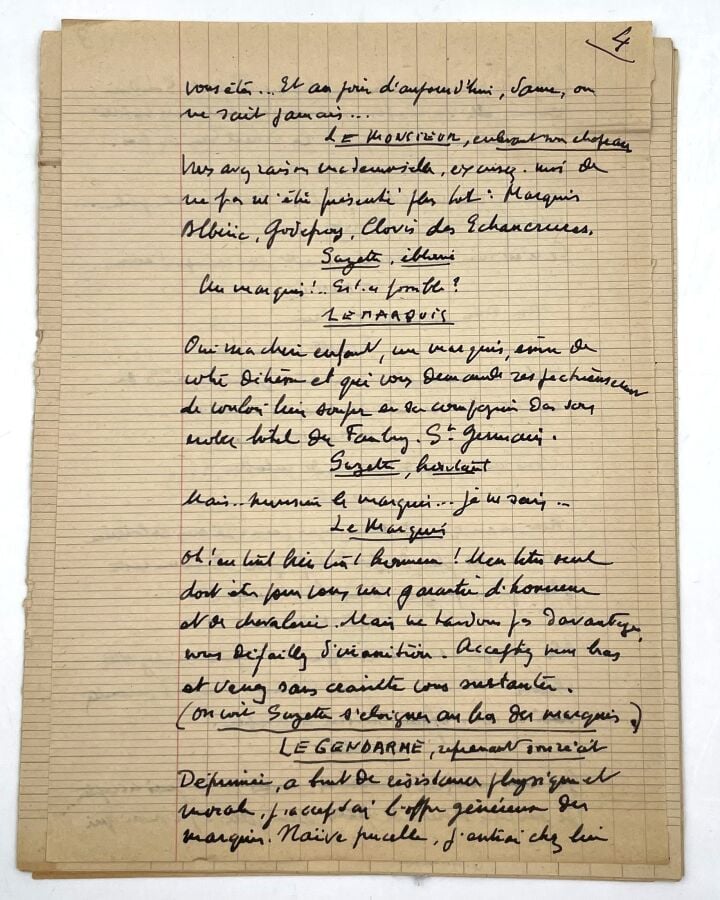 4
vous êtes... Et au jour d'aujourd'hui, dame, on
ne sait jamais...
LE MONSIEUR, enlevant son chapeau
Vous avez raison mademoiselle, excusez-moi de
ne pas m'être présenté plus tôt : Marquis
Albéric, Godefroy, Clovis des Echancrures.
Suzette, éblouie
Un marquis!.. Est-ce possible?
LE MARQUIS
Oui ma chère enfant, un marquis, ému de
votre détresse et qui vous demande respectueusement
de vouloir bien souper en sa compagnie dans son
noble hôtel du Faubourg. St Germain.
Suzette, hésitant
Mais... monsieur le marquis... je ne sais...
Le Marquis
Oh! en tout bien tout honneur! Mon titre seul
doit être pour vous une garantie d'honneur
et de chevalerie. Mais ne tardons pas davantage,
vous défaillez d'inanition. Acceptez mon bras
et venez sans crainte vous sustenter.
(on voit Suzette s'éloigner au bras du marquis)
LE GENDARME, reprenant son récit
Déprimée, à bout de résistance physique et
morale, j'acceptai l'offre généreuse du
marquis. Naïve pucelle, j'entrai chez lui